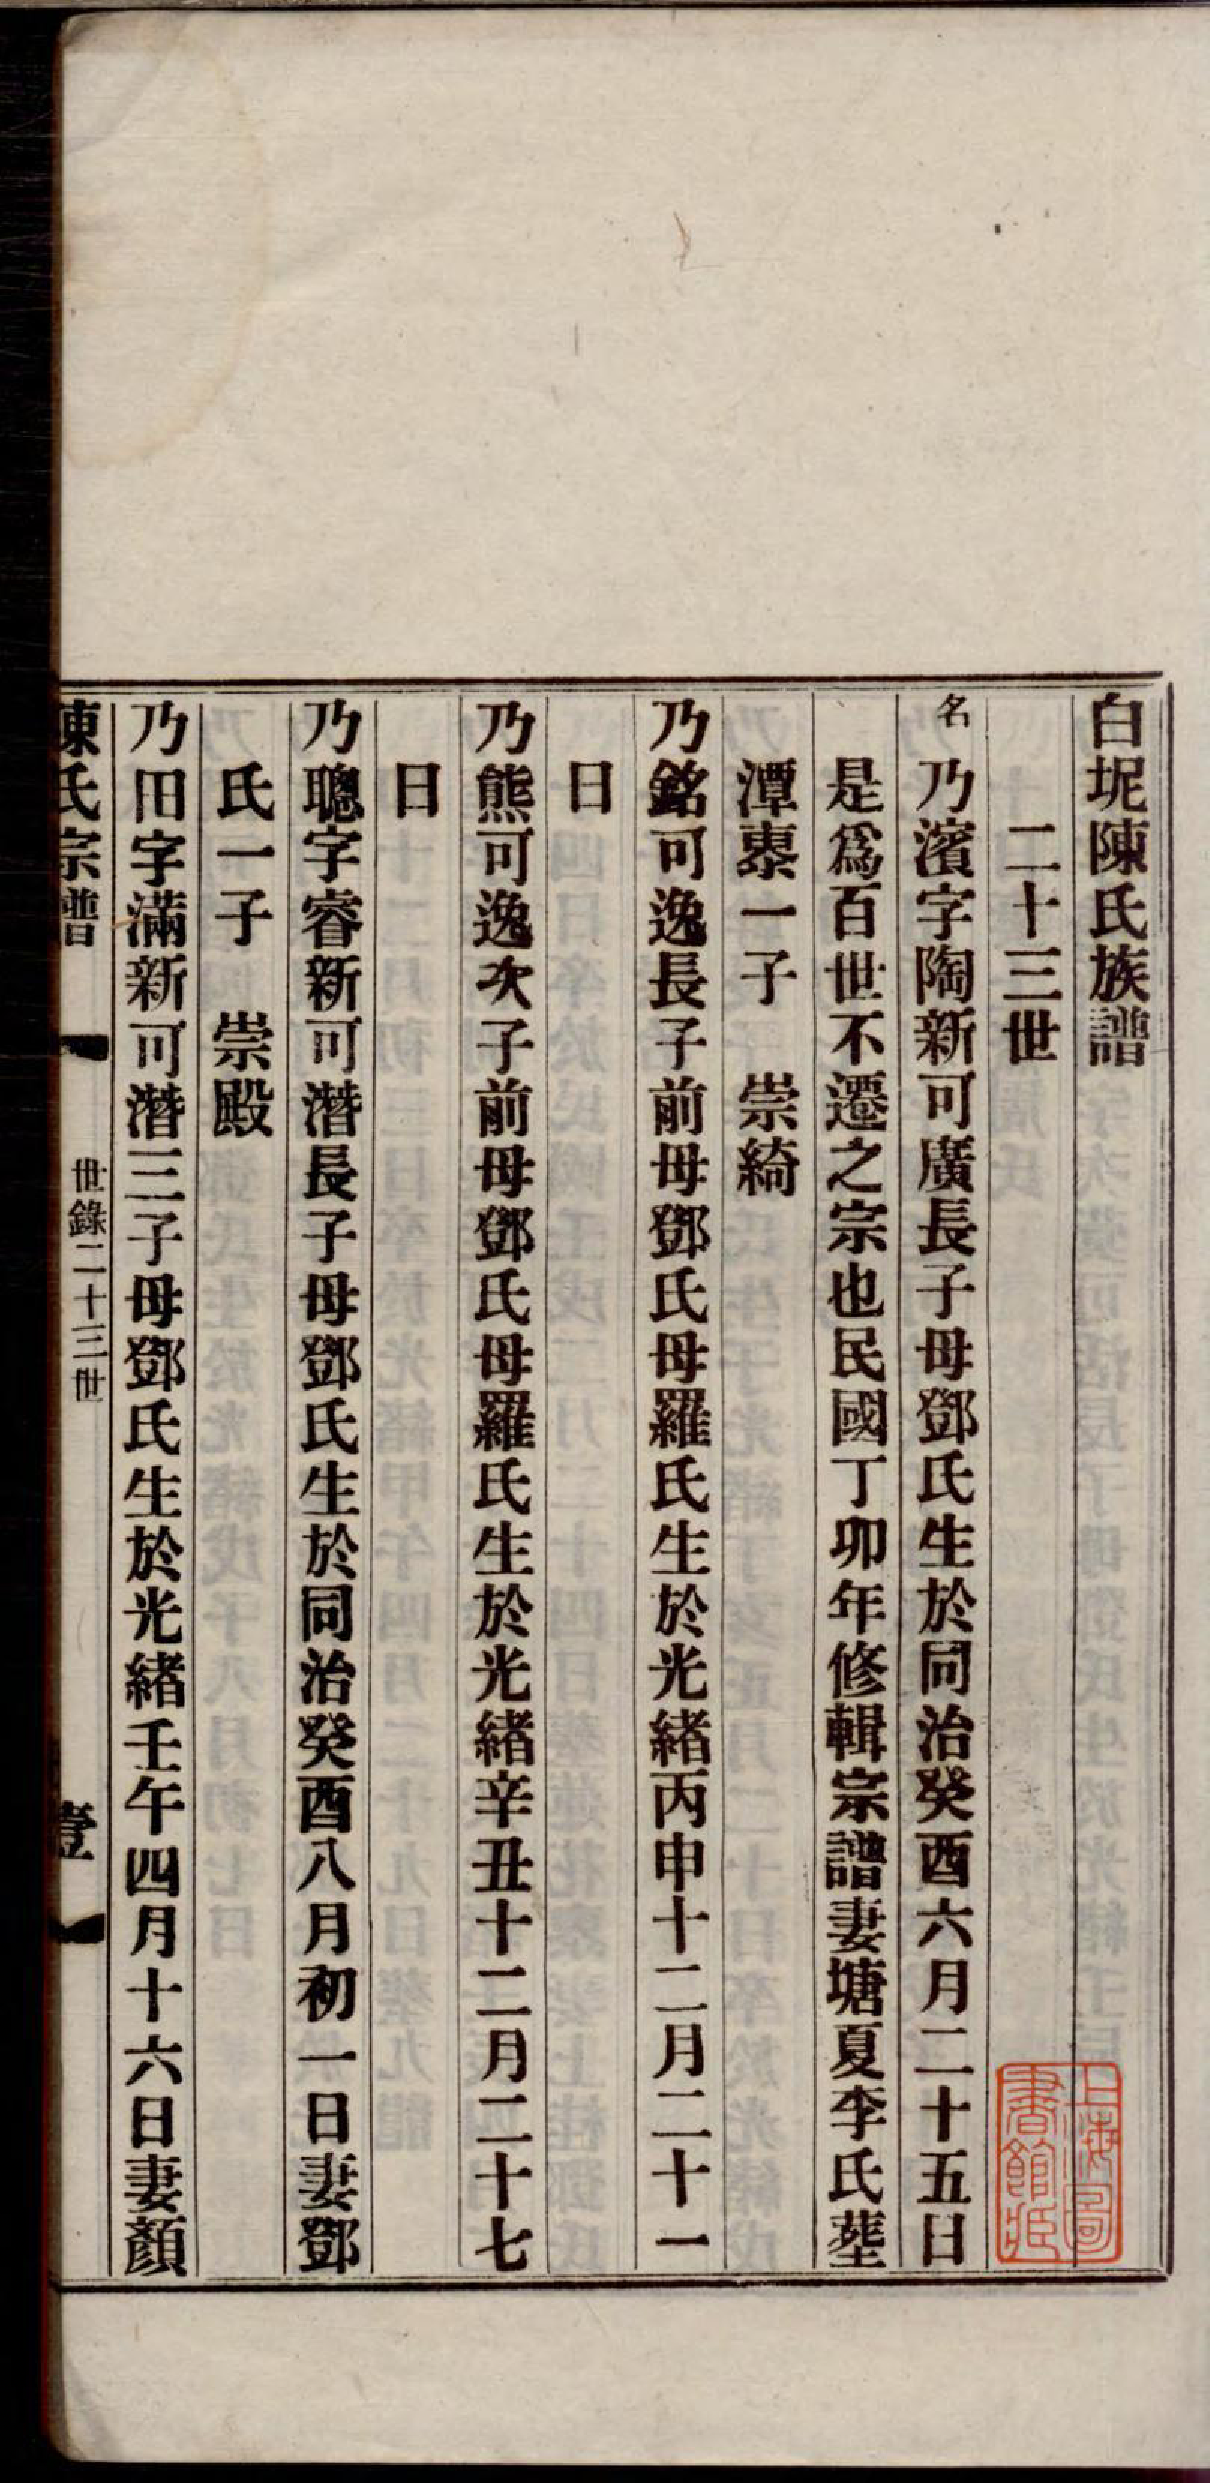 白坭陳氏族譜
二十三世
名
乃濱字陶新可廣長子母鄧氏生於同治癸酉六月二十五日
是爲百世不遷之宗也民國丁卯年修輯宗譜妻塘夏李氏塟
潭㯥一子　崇綺
乃銘可逸長子前母鄧氏母羅氏生於光緒丙申十二月二十一
日
乃熊可逸次子前母鄧氏母羅氏生於光緒辛丑十二月二十七
日
乃聰字睿新可潛長子母鄧氏生於同治癸酉八月初一日妻鄧
氏一子　崇殿
乃旧字滿新可潛三子母鄧氏生於光緒壬午四月十六日妻顏
陳氏宗譜
世錄二十三世
壹
上海圖
書館藏